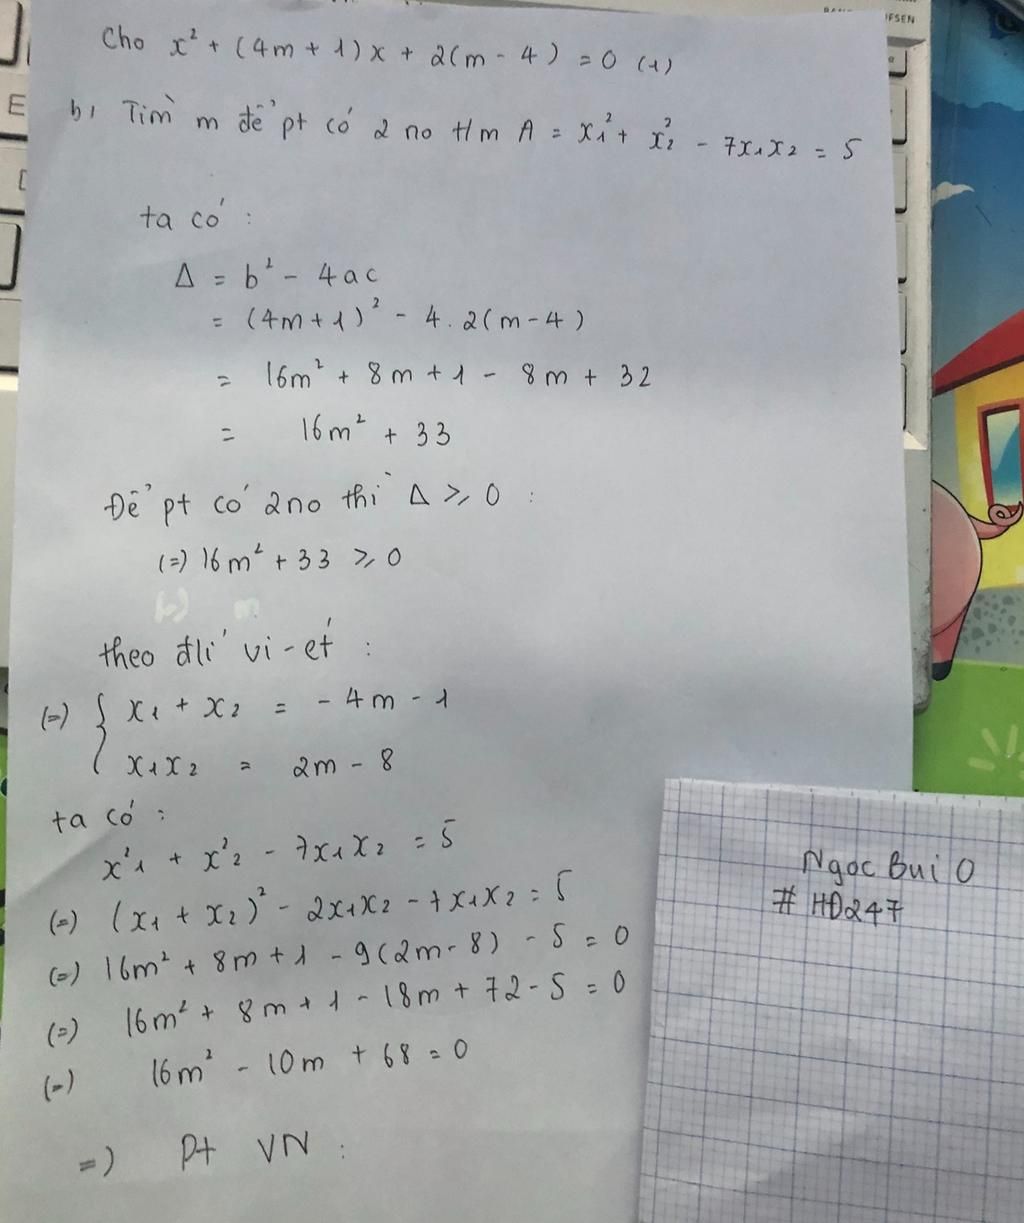 Cho x² + (4m + 1)x + 2(m - 4) = 0 (1)
b, Tìm m để pt có 2 no t/m A = x₁² + x₂² - 7x₁x₂ = 5
ta có :
Δ = b² - 4ac
= (4m + 1)² - 4. 2(m - 4)
= 16m² + 8m + 1 - 8m + 32
= 16m² + 33
Để pt có 2no thì Δ ≥ 0 :
(=) 16m² + 33 ≥ 0
theo đlí vi-ét :
(=) { x₁ + x₂ = - 4m - 1
x₁x₂ = 2m - 8
ta có :
x²₁ + x²₂ - 7x₁x₂ = 5
(=) (x₁ + x₂)² - 2x₁x₂ - 7x₁x₂ = 5
(=) 16m² + 8m + 1 - 9(2m - 8) - 5 = 0
(=) 16m² + 8m + 1 - 18m + 72 - 5 = 0
(=) 16m² - 10m + 68 = 0
=) Pt VN :
Ngoc Bui O
# HD247